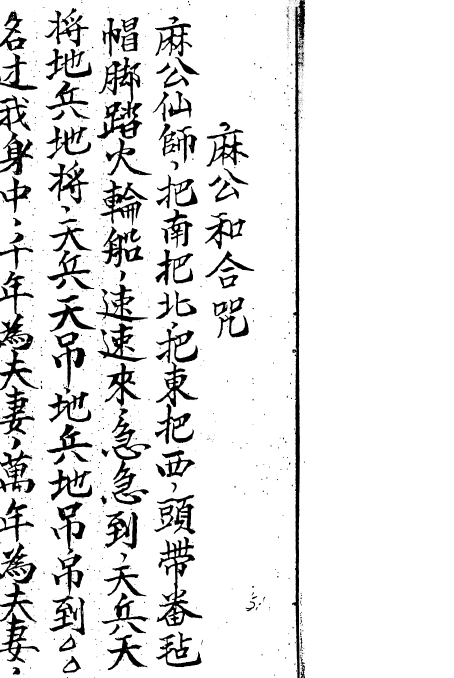 麻公和合咒
麻公仙師、把南把北、把東把西、頭帶番毡
帽脚踏火輪船、速速來、急急到、天兵天
将地兵地将、天兵天吊、地兵地吊、吊到△△
名过我身中、千年為夫妻、萬年為夫妻、